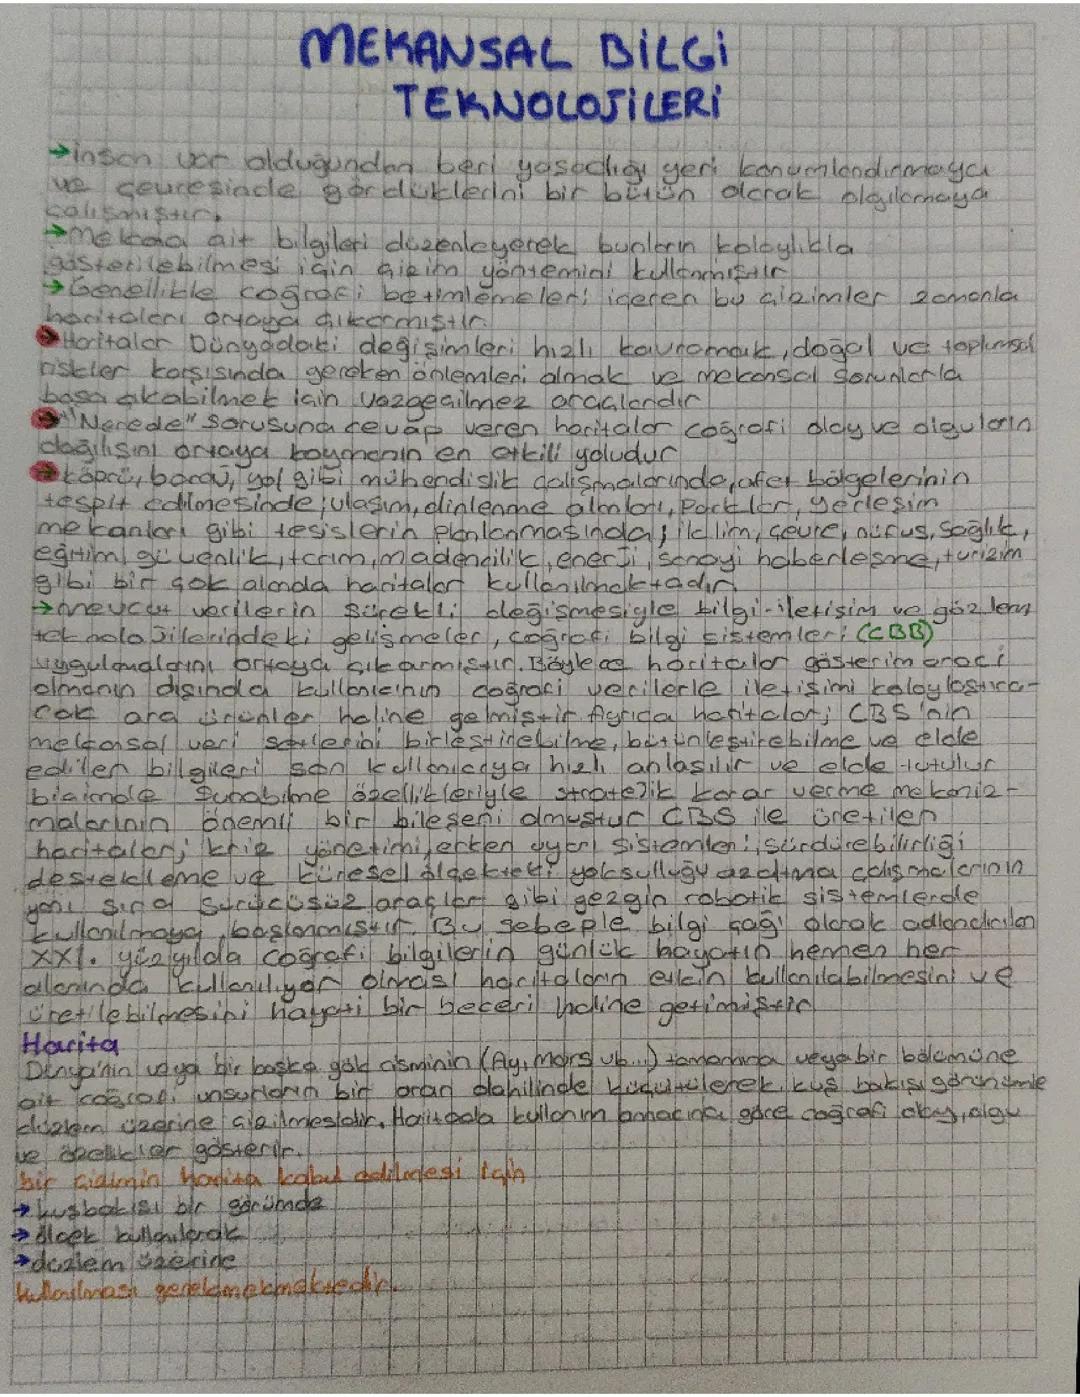 MEKANSAL BİLGİ
TEKNOLOJİLERİ
→insan var olduğundan beri yaşadığı yeri konumlandırmaya
ve çevresinde gördüklerini bir bütün olarak algılamaya
çalışmıştır.
→Mekana ait bilgileri düzenleyerek bunların kolaylıkla
gösterilebilmesi için çizim yöntemini kullanmıştır
→Genellikle coğrafi betimlemeleri içeren bu çizimler zamanla
haritaları ortaya çıkarmıştır.
→Haritalar Dünyadaki değişimleri hızlı kavramak, doğal ve toplumsal
riskler karşısında gereken önlemleri almak ve mekansal sorunlarla
başa çıkabilmek için vazgeçilmez araçlardır
→"Nerede" Sorusuna cevap veren haritalar coğrafi olay ve olguların
dağılışını ortaya koymanın en etkili yoludur
→köprü, baraj, yol gibi mühendislik çalışmalarında, afet bölgelerinin
tespit edilmesinde; ulaşım, dinlenme alanları, Parklar, yerleşim
mekanları gibi tesislerin planlanmasında; iklim, çevre, nüfus, sağlık,
eğitim, güvenlik, tarım, madencilik, enerji, sanayi haberleşme, turizm
gibi bir çok alanda haritalar kullanılmaktadır
→mevcut verilerin sürekli değişmesiyle bilgi-iletişim ve gözlem
teknolojilerindeki gelişmeler, coğrafi bilgi sistemleri (CBB)
uygulamalarını ortaya çıkarmıştır. Böylece haritalar gösterim aracı
olmanın dışında kullanıcının coğrafi verilerle iletişimi kolaylaştıra-
cak ara ürünler haline gelmiştir Ayrıca haritalar; CBS'nin
mekansal veri setlerini birleştirebilme, bütünleştirebilme ve elde
edilen bilgileri son kullanıcıya hızlı anlaşılır ve elde tutulur
biçimde Sunabilme özellikleriyle stratejik karar verme mekaniz-
malarının önemli bir bileşeni olmuştur CBS ile üretilen
haritalar; kriz yönetimi, erken uyarı sistemleri, sürdürebilirliği
destekleme ve küresel ölçekteki yoksulluğu azaltma çalışmalarının
yanı sıra sürücüsüz araçlar gibi gezgin robotik sistemlerde
kullanılmaya başlanmıştır. Bu sebeple bilgi çağı olarak adlandırılan
XXI. yüzyılda coğrafi bilgilerin günlük hayatın hemen her
alanında kullanılıyor olması haritaların etkin kullanılabilmesini ve
üretilebilmesini hayati bir beceri haline getirmiştir
Harita
Dünya'nın veya bir başka gök cisminin (Ay, Mars vb...) tamamına veya bir bölümüne
ait coğrafi unsurların bir oran dahilinde küçültülerek kuş bakışı görünümle
düzlem üzerine çizilmesidir. Haritada kullanım amacına göre coğrafi olay, olgu
ve özellikler gösterir.
bir çizimin harita kabul edilmesi için
→kuşbakışı bir görümde
→ölçek kullanılarak
→düzlem üzerine
kullanılması gerekmekmektedir.